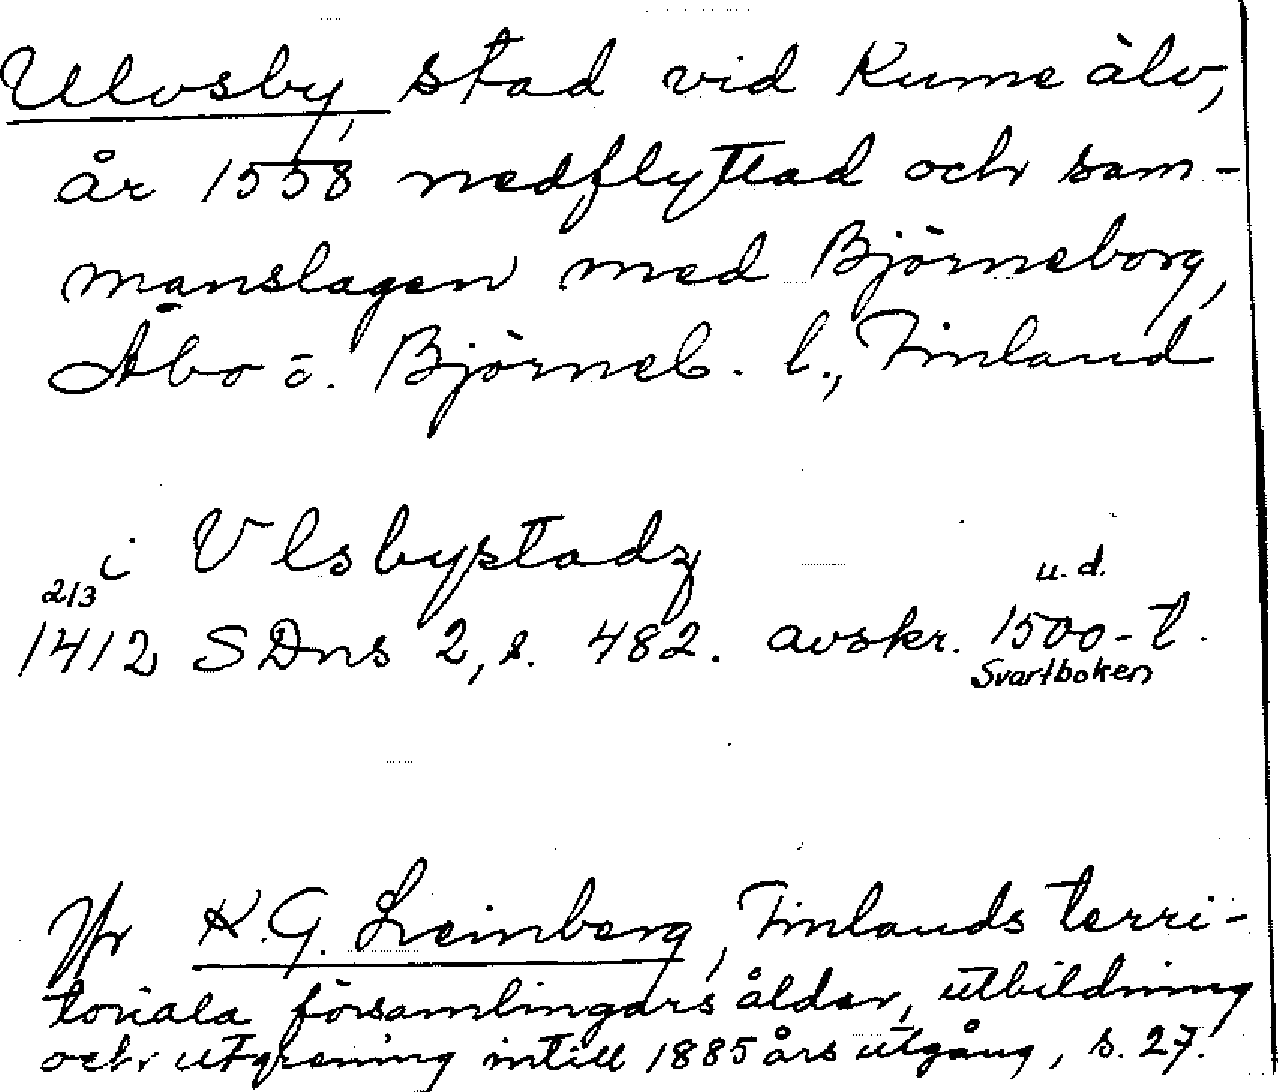 Ulvsby, stad vid Kumo älv,
år 1558 nedflyttad och sam-
manslagen med Björneborg,
Åbo o. Björneb. l., Finland
i Vlsbystadz
2/3
u. d.
1412 SDns 2, s. 482. avskr. 1500-t.
Svartboken
Jfr K.G. Leinberg, Finlands terri-
toriala församlingars ålder, utbildning
och utgrening intill 1885 års utgång, s. 27.